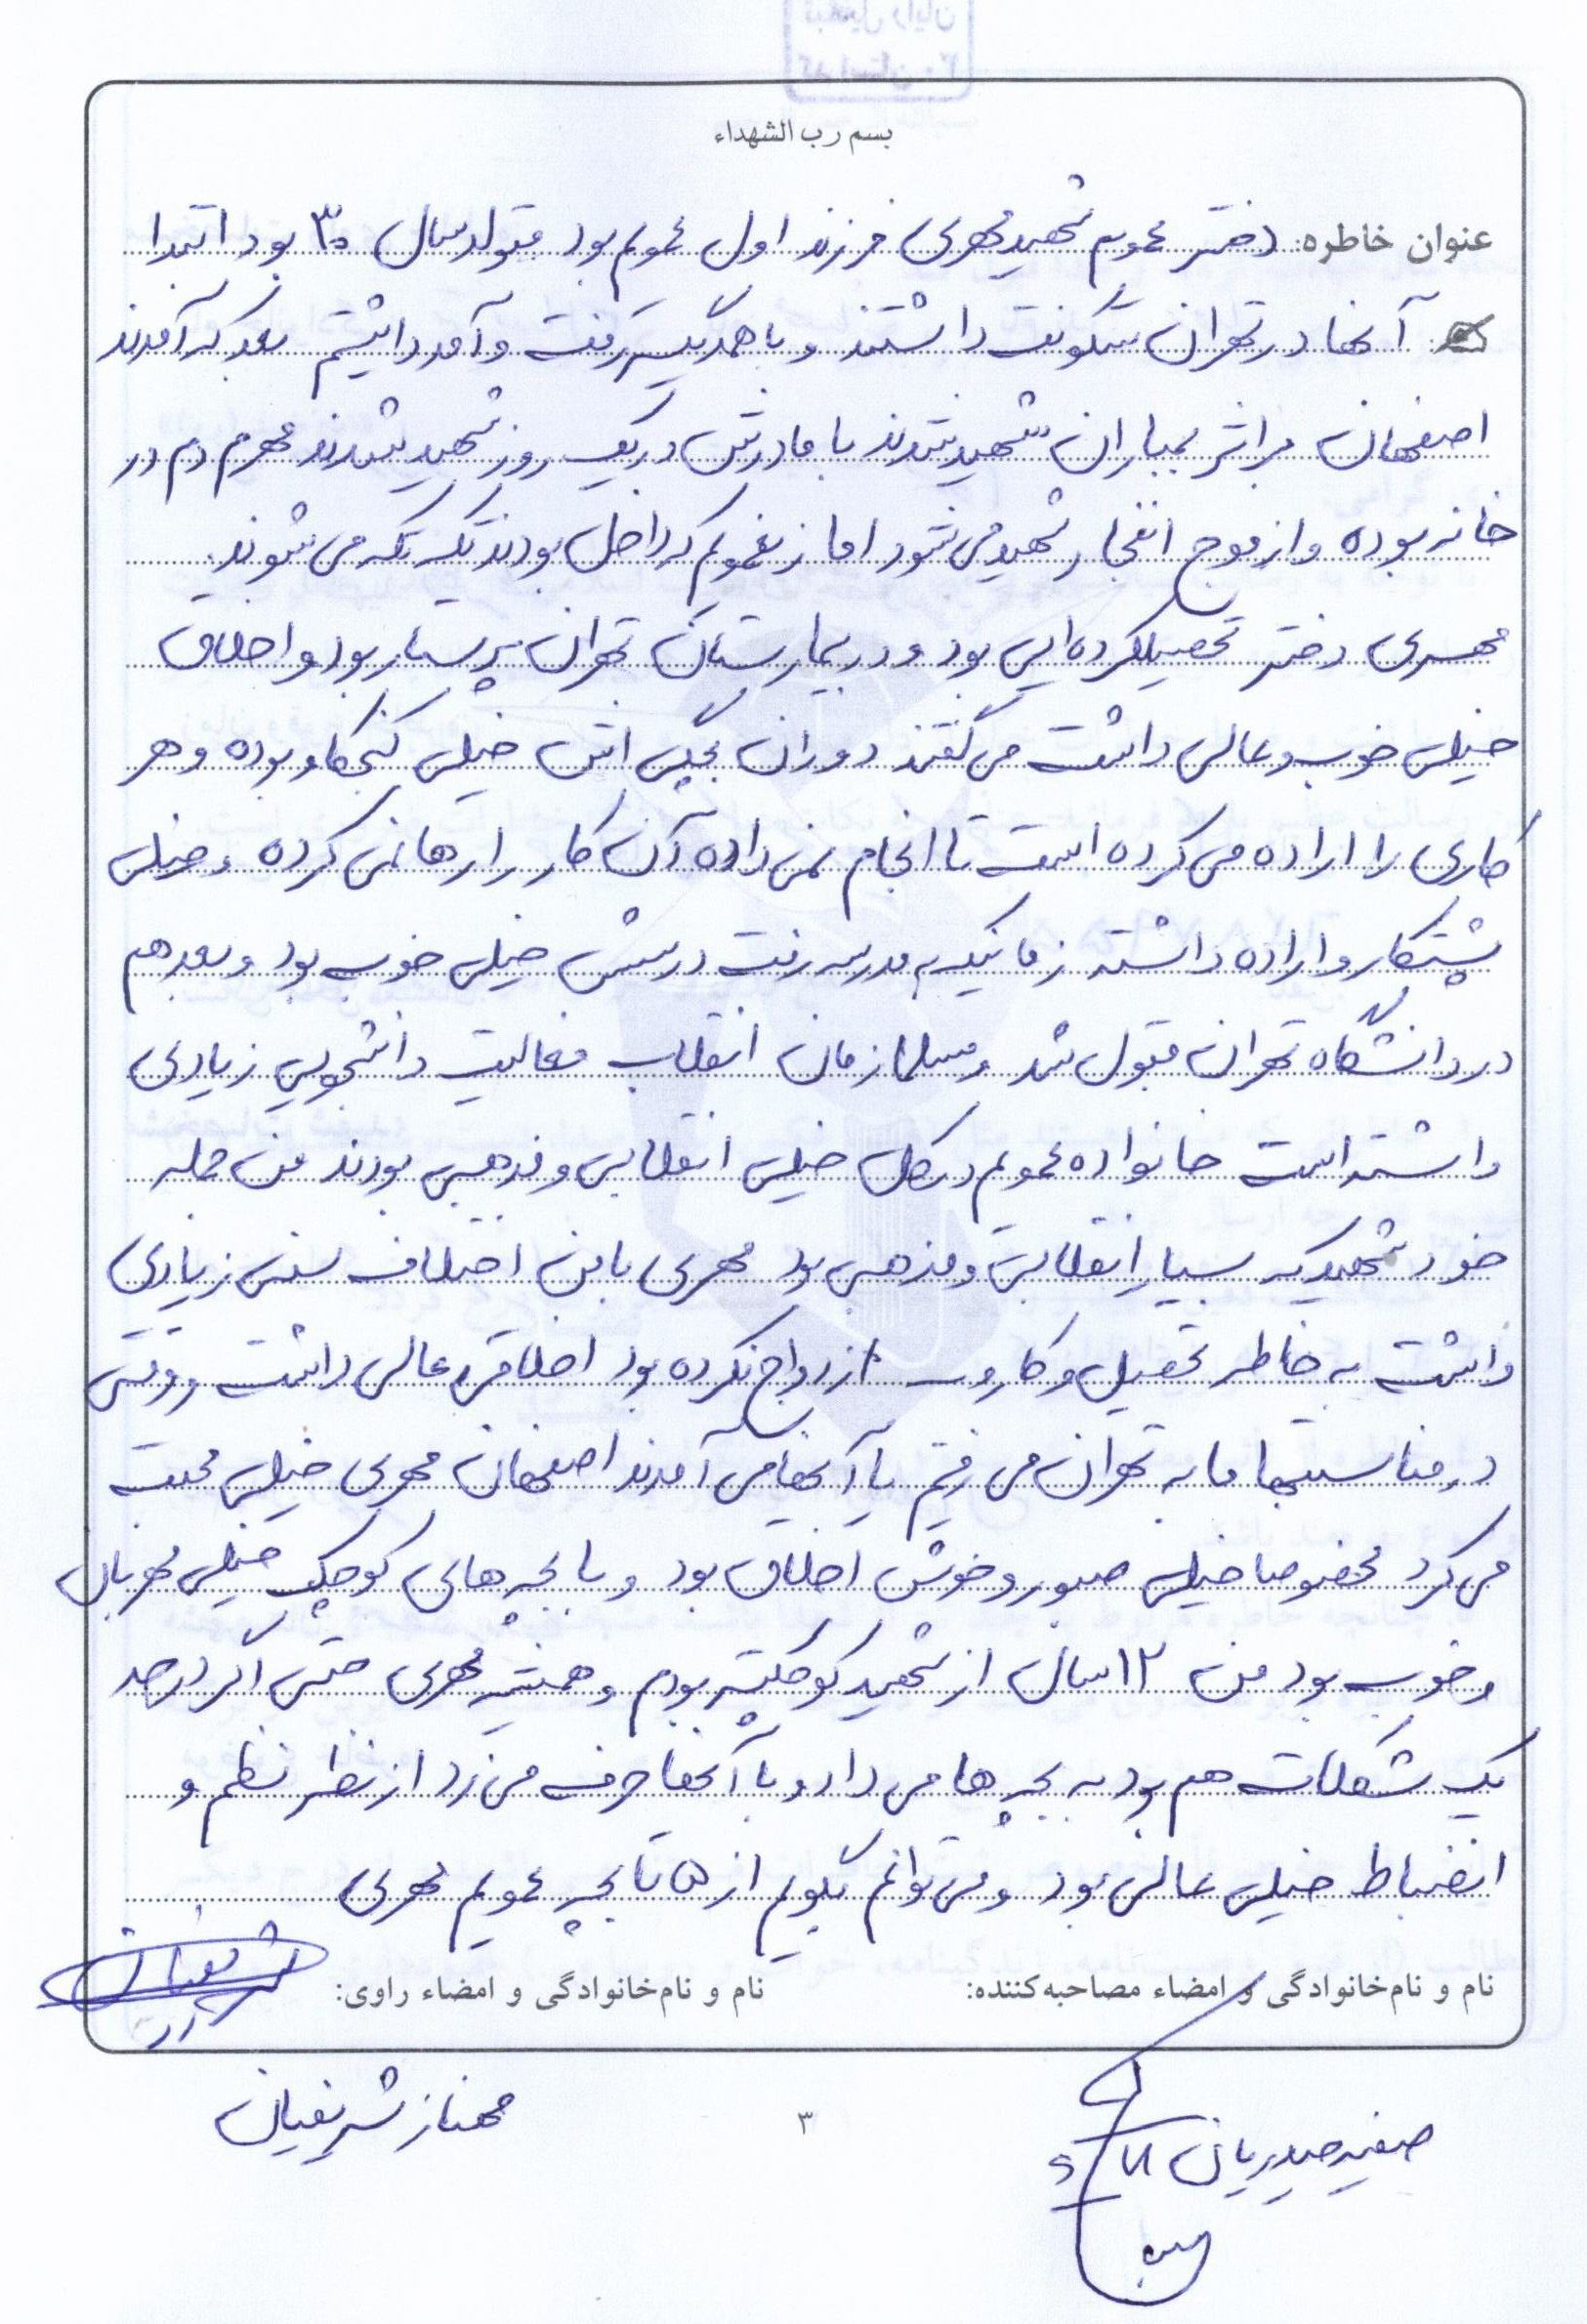 بسم رب الشهداء
عنوان خاطره: دختر عمویم شهید مهری فرزند اول عمویم بود متولد سال ۳۰ بود ابتدا
آنها در تهران سکونت داشتند و با همدیگر رفت و آمد داشتیم بعد که آمدند
اصفهان بر اثر بمباران شهید شدند با مادرش در یک روز شهید شدند مهری دم در
خانه بوده و از موج انفجار شهید می شود اما زنعمویم که داخل بودند تکه تکه می شوند.
مهری دختر تحصیلکرده ایی بود و در بیمارستان تهران پرستار بود و اخلاق
خیلی خوب و عالی داشت می گفتند دوران بچگی اش خیلی کنجکاو بوده و هر
کاری را اراده می کرده است تا انجام نمی داده آن کار را رها نمی کرده و خیلی
پشتکار و اراده داشته زمانیکه به مدرسه رفت درسش خیلی خوب بود و بعد هم
در دانشگاه تهران قبول شد و مسلما زمان انقلاب فعالیت دانشجویی زیادی
داشته است خانواده عمویم در کل خیلی انقلابی و مذهبی بودند من جمله
خود شهید که بسیار انقلابی و مذهبی بود مهری با من اختلاف سنی زیادی
داشت به خاطر تحصیل و کار و ازدواج نکرده بود اخلاقی عالی داشت وقتی
در مناسبتها ما به تهران می رفتیم یا آنها می آمدند اصفهان مهری خیلی محبت
می کرد مخصوصا خیلی صبور و خوش اخلاق بود و با بچه های کوچک خیلی مهربان
و خوب بود من ۱۲ سال از شهید کوچکتر بودم و همیشه مهری حتی اگر در حد
یک شکلات هم بود به بچه ها می داد و با آنها حرف می زد از نظر نظم و
انضباط خیلی عالی بود و می توانم بگویم از ۵ تا بچه عمویم مهری
نام و نام‌خانوادگی و امضاء مصاحبه‌کننده: نام و نام‌خانوادگی و امضاء راوی: شریفیان
صفیه حیدریان مهناز شریفیان
۳